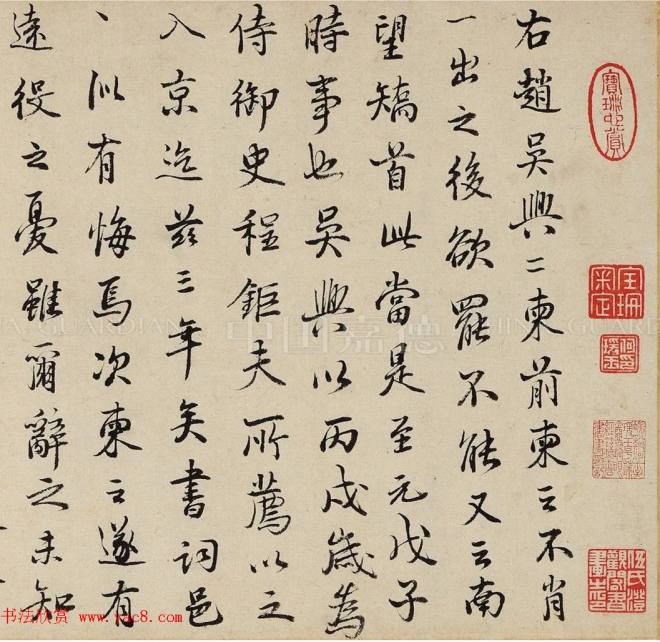 右趙吳興二柬前柬云不肖
一出之後欲罷不能又云南
望矯首此當是至元戊子
時事也吳興以丙戌歲為
侍御史程鉅夫所薦以之
入京迄茲三年矣書詞邑
丶似有悔焉次柬云遂有
遠役之憂雖爾辭之未知
中国嘉德
CHINA GUARDIAN
书法欣赏 www.yac8.com